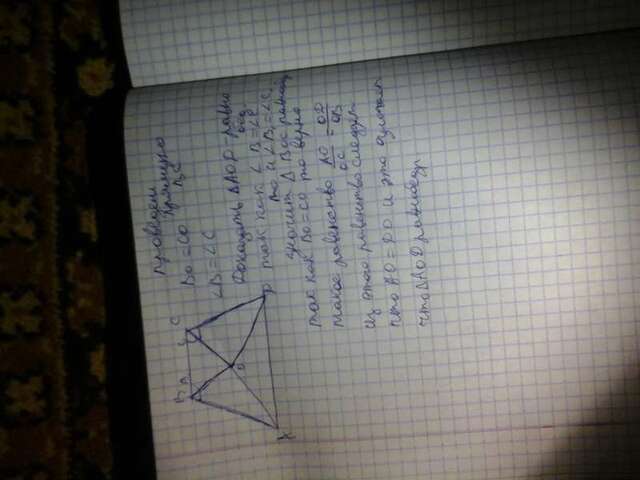 проведем
прямую
BC
BO = CO
∠B = ∠C
B
C
O
D
A
Доказать ΔAOD - равно
так как ∠B = ∠C
то и ∠B₁ = ∠C₁
значит Δ BOC равноб,
так как BO = CO то верно
такое равенство AO/OC = OD/OB
из этого равенства следует
что AO = DO и это означает
что ΔAOD равнобедр